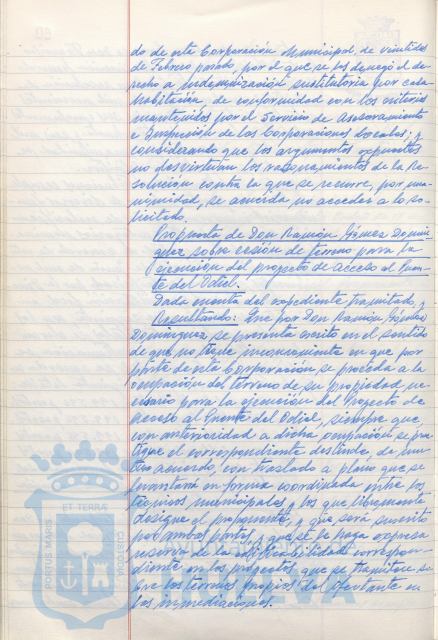 do de esta Corporación Municipal, de veintidos
de Febrero pasado, por el que se les denegó el de-
recho a indemnización sustitutoria por casa
habitación, de conformidad con los criterios
mantenidos por el Servicio de Asesoramiento
e Inspección de las Corporaciones Locales; y
considerando que los argumentos expuestos
no desvirtuan los razonamientos de la Re-
solución contra la que se recurre, por una-
nimidad, se acuerda no acceder a lo so-
licitado.
Propuesta de Don Ramón Gómez Domin-
guez sobre cesión de terreno para la
ejecución del proyecto de acceso al Puen-
te del Odiel.
Dada cuenta del expediente tramitado, y
Resultando: Que por Don Ramón Gómez
Dominguez se presenta escrito en el sentido
de que no tiene inconveniente en que por
parte de esta Corporación se proceda a la
ocupación del terreno de su propiedad, ne-
cesario para la ejecución del Proyecto de
acceso al Puente del Odiel, siempre que
con anterioridad a dicha ocupación se prac-
tique el correspondiente deslinde, de mu-
tuo acuerdo, con traslado a plano que se
levantará en forma coordinada entre los
técnicos municipales y los que libremente
designe el proponente, y que será suscrito
por ambas partes, y que se le haga expresa
reserva de la edificabilidad correspon-
diente en los proyectos que se tramiten so-
bre los terrenos propios del ofertante en
las inmediaciones.
ET TERRÆ
PORTUS MARIS
CUSTODIA
HUELVA